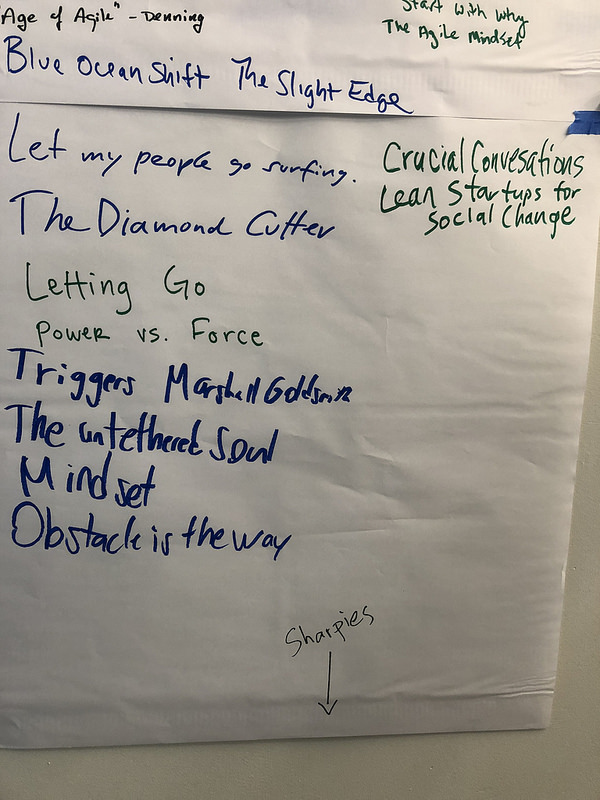 "Age of Agile" - Denning
Start with why
The Agile Mindset
Blue Ocean Shift The Slight Edge
Let my people go surfing.
The Diamond Cutter
Letting Go
Power vs. Force
Triggers Marshall Goldsmith
The untethered Soul
Mindset
Obstacle is the way
Crucial Convesations
Lean Startups for
Social Change
Sharpies